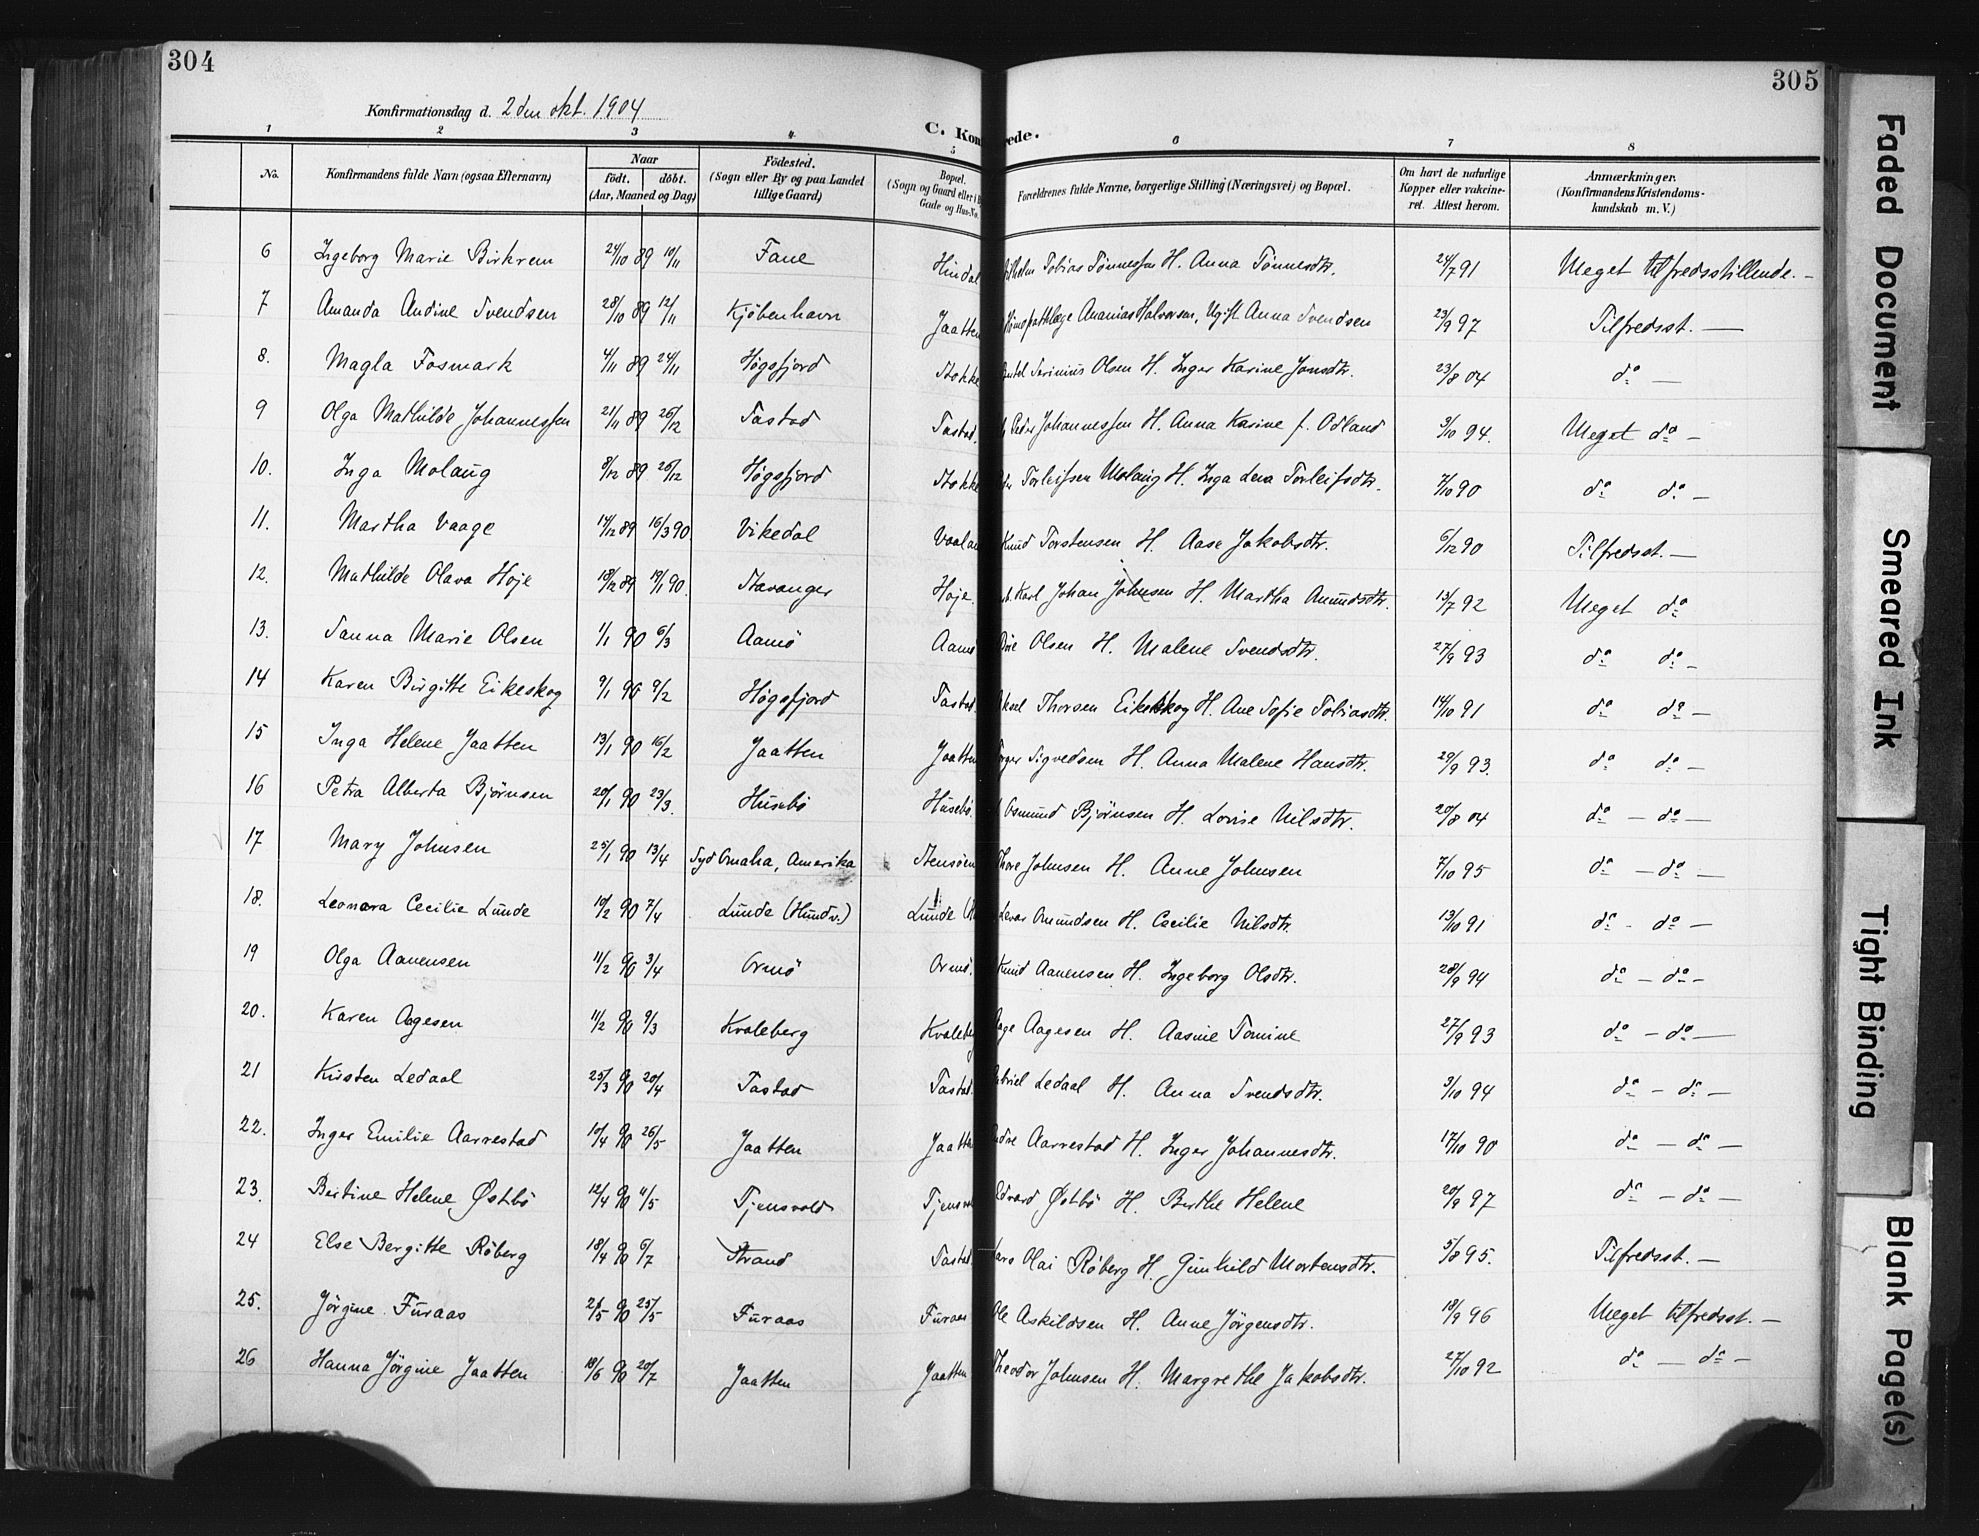 304
305
Konfirmationsdag d. 2den okt. 1904
C. Kon rede.
1 2 3 4 5 6 7 8
No. Konfirmandens fulde Navn (ogsaa Efternavn) Naar født. døbt. (Aar, Maaned og Dag) Födested. (Sogn eller By og paa Landet tillige Gaard) Bopæl. (Sogn og Gaard eller i B Gade og Hus-No. Forældrenes fulde Navne, borgerlige Stilling (Næringsvei) og Bopæl. Om havt de naturlige Kopper eller vakcineret. Attest herom. Anmærkninger. (Konfirmandens Kristendomskundskab m. V.)
6 Ingeborg Marie Birkrem 24/10 89 10/11 Fane Hindal Tobias Tønnessen H. Anna Tønnesdtr. 24/7 91 Meget tilfredsstillende. —
7 Amanda Andine Svendsen 28/10 89 12/11 Kjöbenhavn Jaatten Ananias Halvorsen, Ugift Anna Svendsen 23/9 97 Tilfredsst. —
8. Magla Fosmark 4/11 89 24/11 Høgsfjord Stokke Serinius Olsen H. Inger Karine Jonsdtr. 23/8 04 do —
9 Olga Mathilde Johannessen 21/11 89 26/12 Tastad Tastad. Peder Johannessen H. Anna Karine f. Odland 3/10 94. Meget do —
10. Inga Molaug 8/12 89 26/12 Høgsfjord Stokke Torleifsen Molaug H. Inga Lena Torleifsdtr. 7/10 90 do do —
11. Martha Vaage 14/12 89 16/3 90. Vikedal Vaalan Knud Torstensen H. Aase Jakobsdtr. 6/12 90 Tilfredsst. —
12. Mathilde Olava Høje 18/12 89 19/1 90. Stavanger Høje. Karl Johan Johnsen H. Martha Amundsdtr. 13/7 92 Meget do
13. Sanna Marie Olsen 1/1 90 6/3 Aamö Aamö Olsen H. Malene Svendsdtr. 27/9 93 do do —
14 Karen Birgitte Eikeskog 9/1 90 9/2 Høgsfjord Tastad. Thorsen Eikeskog H. Ane Sofie Tobiasdtr. 14/10 91 do do —
15 Inga Helene Jaatten 13/1 90 16/2 Jaatten Jaatten Sigvedsen H. Anna Malene Hansdtr. 29/9 93. do do —
16 Petra Alberta Björnsen 20/1 90 23/3. Husebö Husebö. Osmund Björnsen H. Lovise Nilsdtr. 20/8 04 do — do —
17 Mary Johnsen 25/1 90 13/4 Syd Omaha, Amerika Stensöen Thore Johnsen H. Anne Johnsen 7/10 95 do — do —
18. Leonora Cecilie Lunde 10/2 90 7/4 Lunde (Hundv.) Lunde (H Amundsen H. Cecilie Nilsdtr. 13/10 91 do - do —
19 Olga Aanensen 11/2 90 3/4 Ormö Ormö. Knud Aanensen H. Ingeborg Olsdtr. 28/9 94 do — do —
20. Karen Aagesen 11/2 90 9/3 Kvaleberg Kvaleberg Aage Aagesen H. Aasine Tomine 27/9 93 do — do —
21 Kirsten Ledaal 25/3 90 20/4 Tastad Tastad. Gabriel Ledaal H. Anna Svendsdtr. 3/10 94 do — do —
22. Inger Emilie Aarrestad 10/4 90 26/5 Jaatten Jaatten Aarrestad H. Inger Johannesdtr. 17/10 90 do — do —
23. Bertine Helene Østbö 12/4 90 4/5 Tjensvold Tjensvo Edvard Østbö H. Berthe Helene 20/9 97 do — do —
24 Else Bergitte Röberg 18/4 90 6/7 Strand Tastad. Lars Olai Röberg H. Gunhild Mortensdtr. 5/8 95. Tilfredsst. —
25. Jörgine Furaas 2/5 90 25/5 Furaas Furaas Ole Askildsen H. Anne Jörgensdtr. 18/9 96 Meget tilfredsst. —
26 Hanna Jörgine Jaatten 18/6 90 20/7 Jaatten Jaatten Theodor Johnsen H. Margrethe Jakobsdtr. 27/10 92 do — do —
Faded Document
Smeared Ink
Tight Binding
Blank Page(s)